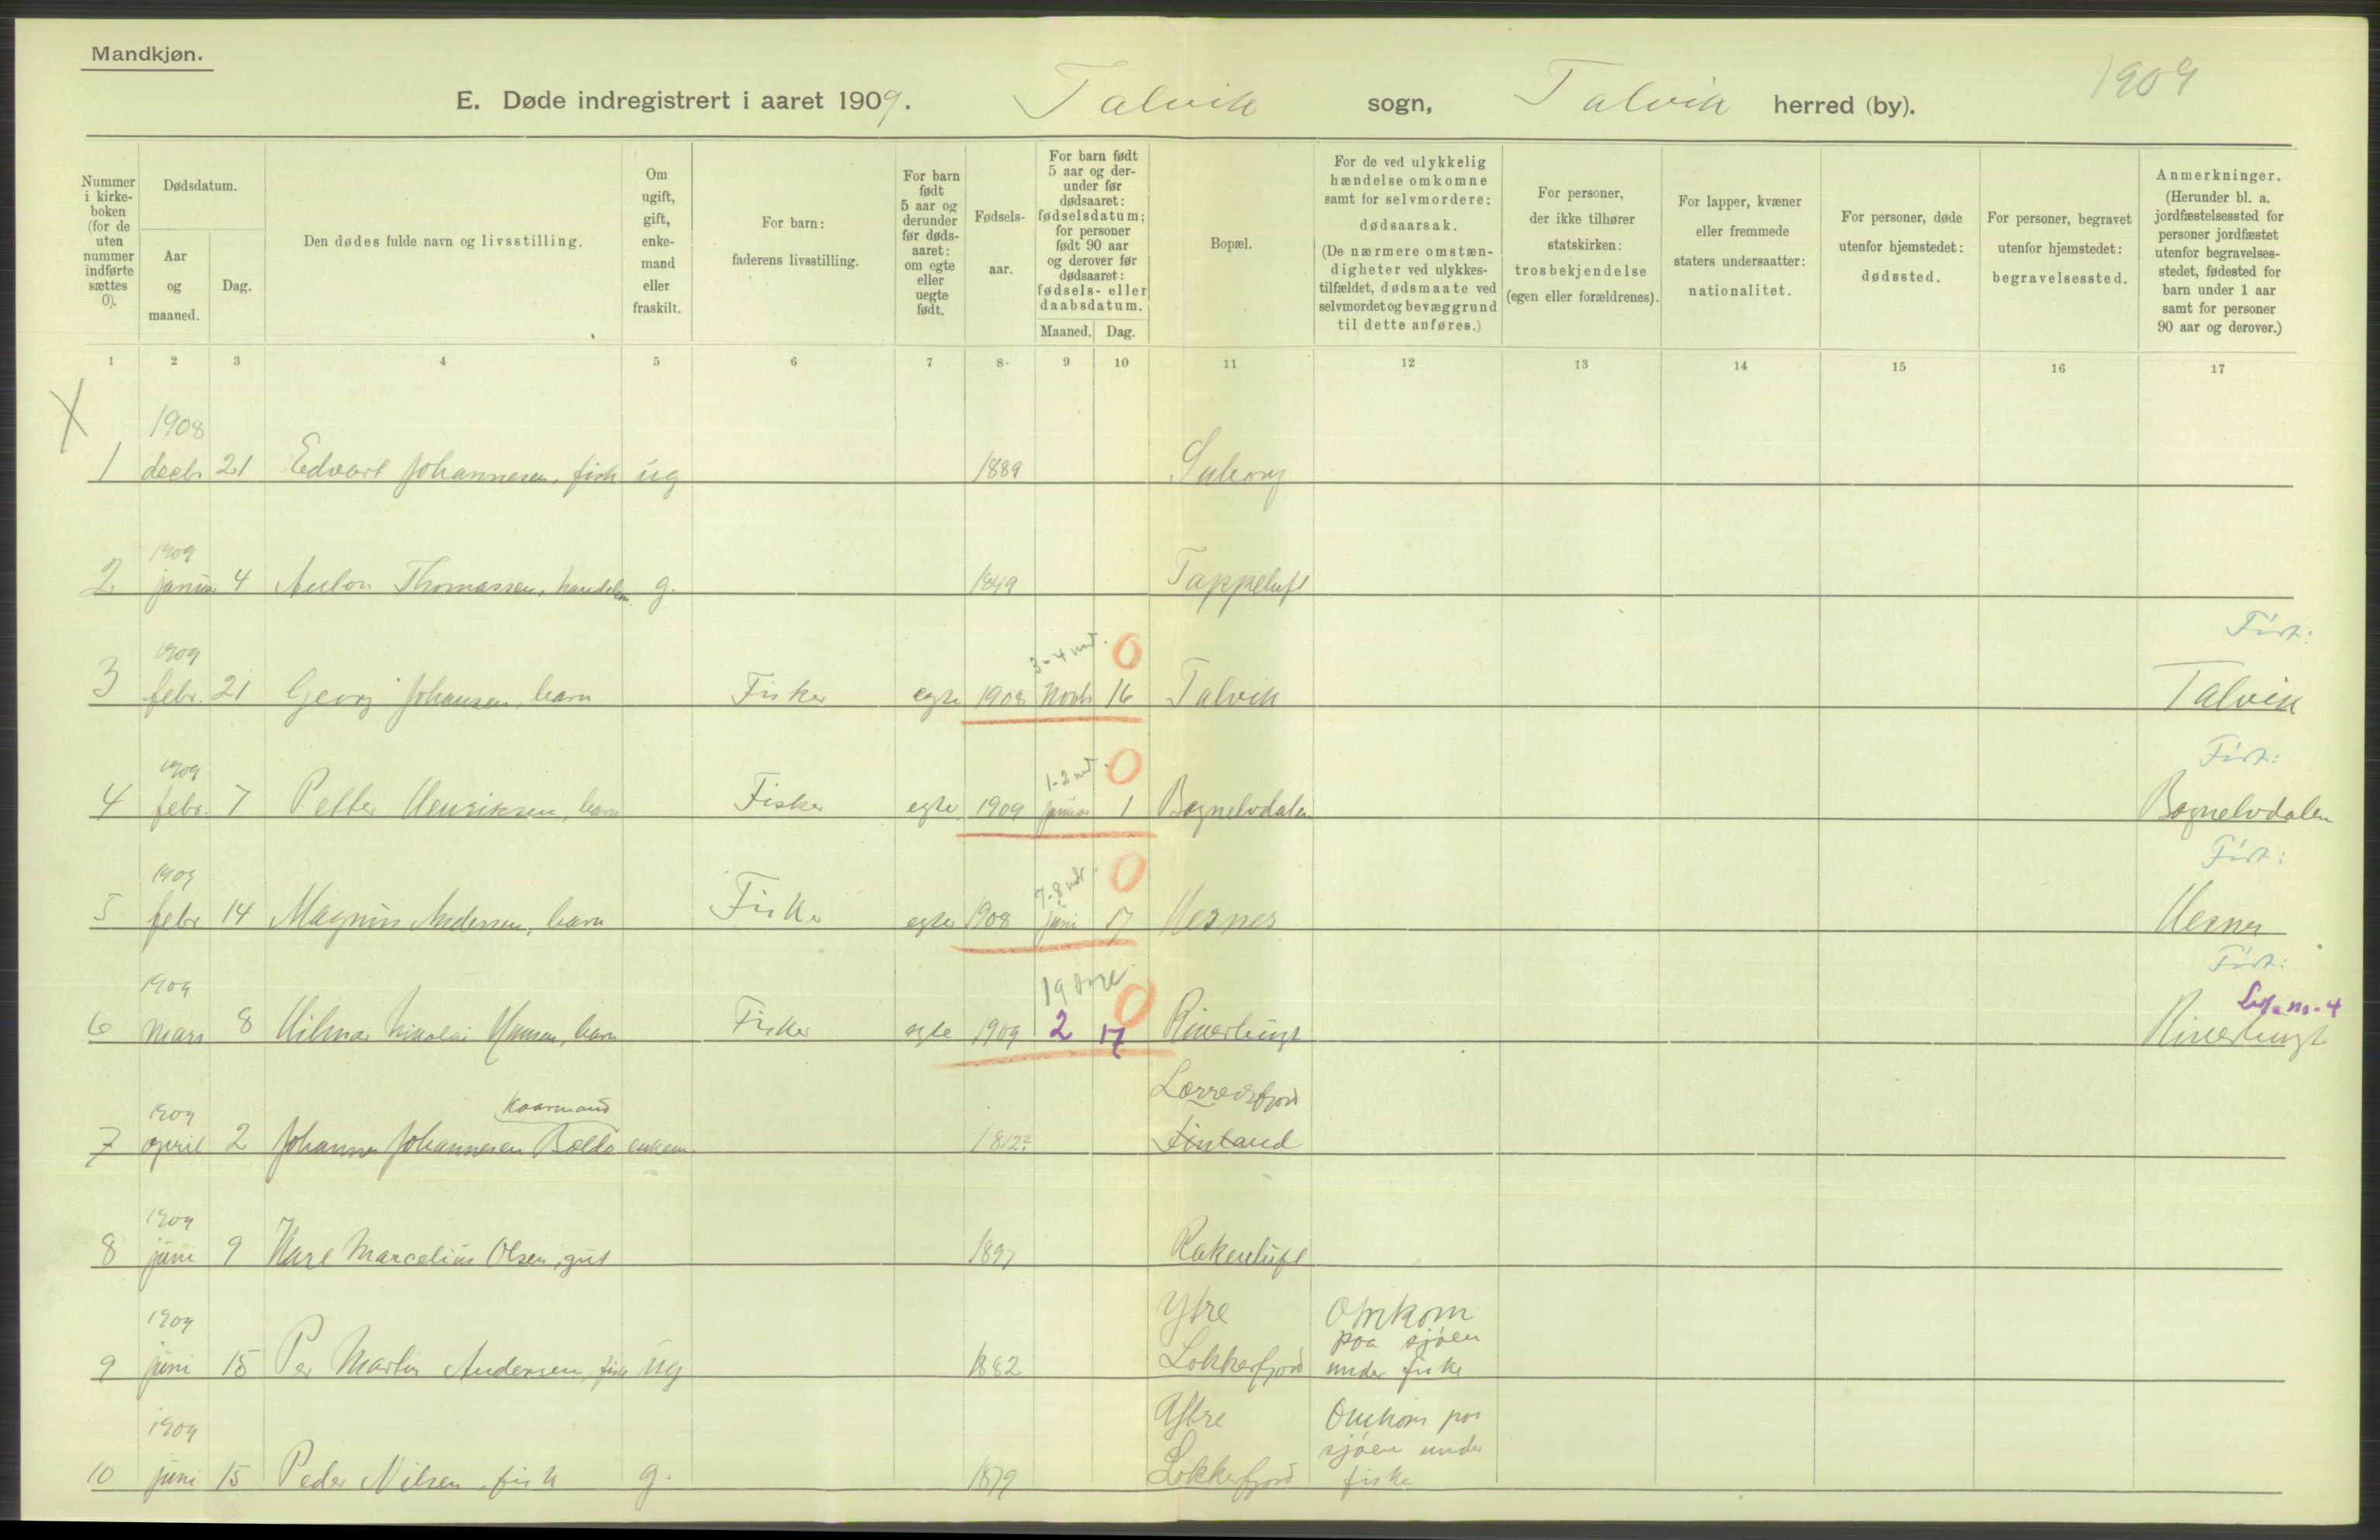 Mandkjøn.
E. Døde indregistrert i aaret 1909. Talvik sogn, Talvik herred (by).
1909
Nummer i kirke-boken (for de uten nummer indførte sættes 0).
Dødsdatum.
Aar og maaned.
Dag.
Den dødes fulde navn og livsstilling.
Om ugift, gift, enke-mand eller fraskilt.
For barn: faderens livsstilling.
For barn født 5 aar og derunder før døds-aaret: om egte eller uegte født.
Fødsels-aar.
For barn født 5 aar og der-under før dødsaaret: fødselsdatum; for personer født 90 aar og derover før dødsaaret: fødsels- eller daabsdatum.
Maaned. Dag.
Bopæl.
For de ved ulykkelig hændelse omkomne samt for selvmordere: dødsaarsak. (De nærmere omstæn-digheter ved ulykkes-tilfældet, dødsmaate ved selvmordet og bevæggrund til dette anføres.)
For personer, der ikke tilhører statskirken: trosbekjendelse (egen eller forældrenes).
For lapper, kvæner eller fremmede staters undersaatter: nationalitet.
For personer, døde utenfor hjemstedet: dødssted.
For personer, begravet utenfor hjemstedet: begravelsessted.
Anmerkninger. (Herunder bl. a. jordfæstelsessted for personer jordfæstet utenfor begravelses-stedet, fødested for barn under 1 aar samt for personer 90 aar og derover.)
1 2 3 4 5 6 7 8 9 10 11 12 13 14 15 16 17
X 1908
1 decbr 21 Edvart Johannesen, fisk ug 1889
1909
2 januar 4 Anton Thomassen, handelsm. g. 1849 Tappeluft
1909 3-4 md. 0 Født:
3 febr. 21 Georg Johansen, barn Fisker egte 1908 Novbr 16 Talvik Talvik
1909 1-2 md. 0 Født:
4 febr. 7 Petter Henriksen, barn Fisker egte 1909 januar 1 Bognelvdalen Bognelvdalen
1909 7-8 md. 0 Født:
5 febr 14 Magnus Andersen, barn Fisker egte 1908 juni 17
1909 19 dage 0 Født:
no. 4
6 mars 8 Hilmar Nikolai Hansen, barn Fisker egte 1909 2 17 Riverbugt Riverbugt
1909 Kaarmand
7 april 2 Johannes Johannesen Boldo enkem. 1812? Finland
1909
8 juni 9 Karl Marcelius Olsen, gut 1897 Rakeluft
1909 Ytre Omkom
paa sjøen
9 juni 15 Per Martin Andersen, fisk ug 1882 Lokkerfjord under fiske
1909 Ytre Omkom paa
sjøen under
10 juni 15 Peder Nilsen, fisk g. 1879 Lokkerfjord fiske